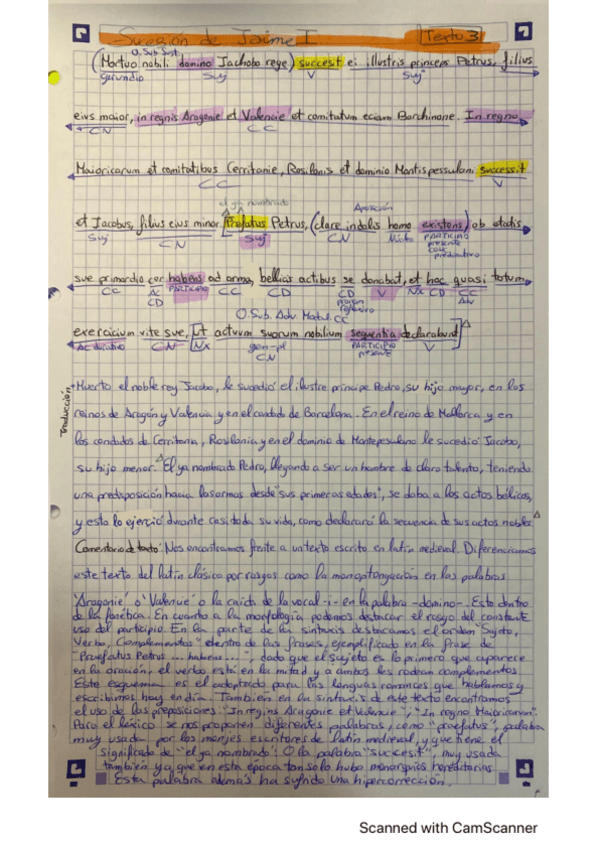 Sucesión de Jaime I Texto 3
O. Sub Sust.
(Mortuo nobili domino Jachobo rege) succesit ei illustris princeps Petrus, filius
gerundio Suj V Suj
eius maior, in regnis Aragonie et Valencie et comitatum eciam Barchinone. In regno
CN CC
Maioricarum et comitatibus Cerritanie, Rosilonis et dominio Montispessulani successit
CC V
el ya nombrado Aposición
et Jacobus, filius eius minor. Prefatus Petrus, (clare indolis homo existens) ob etatis
Suj CN Suj CN PARTICIPIO presente predicativo
sue primordio cor habens ad arma, bellicis actibus se donabat, et hoc quasi totum
CC Ac CD PARTICIPIO CC CD CD V Nx CD CC Adv
O. Sub. Adv. Modal. CC
exercicium vite sue, [ut actuum suorum nobilium sequentia declarabunt]
Acusativo CN Nx gen-pl CN PARTICIPIO presente V
Traducción
Muerto el noble rey Jacobo, le sucedió el ilustre príncipe Pedro, su hijo mayor, en los
reinos de Aragón y Valencia y en el condado de Barcelona. En el reino de Mallorca y en
los condados de Cerritania, Rosilonia y en el dominio de Montepesulano le sucedió Jacobo,
su hijo menor. El ya nombrado Pedro, llegando a ser un hombre de claro talento, teniendo
una predisposición hacia las armas desde "sus primeros edades", se daba a los actos bélicos,
y esto lo ejerció durante casi toda su vida, como declarará la secuencia de sus actos nobles.
Comentario de texto: Nos encontramos frente a un texto escrito en latín medieval. Diferenciamos
este texto del latín clásico por rasgos como la monoptongación en las palabras
'Aragonie' o 'Valencie' o la caída de la vocal -i- en la palabra -domino-. Esto dentro
de la fonética. En cuanto a la morfología podemos destacar el rasgo del constante
uso del participio. En la parte de la sintaxis destacamos el orden "Sujeto,
Verbo, Complementos" dentro de las frases, ejemplificado en la frase de
"Praefatus Petrus ... habens ...", dado que el sujeto es lo primero que aparece
en la oración, el verbo está en la mitad y a ambos les rodean complementos.
Este esquema es el adoptado para las lenguas romances que hablamos y
escribimos hoy en día. También en la sintaxis de este texto encontramos
el uso de las preposiciones "In regins Aragonie et Valencie", "In regno Maioricarum".
Para el léxico se nos proponen diferentes palabras, como "praefatus", palabra
muy usada por los monjes escritores de latín medieval, y que tiene el
significado de "el ya nombrado". O la palabra "succesit", muy usada
también ya que en esta época tan solo hubo monarquías hereditarias.
Esta palabra además ha sufrido una hipercorrección.
Scanned with CamScanner